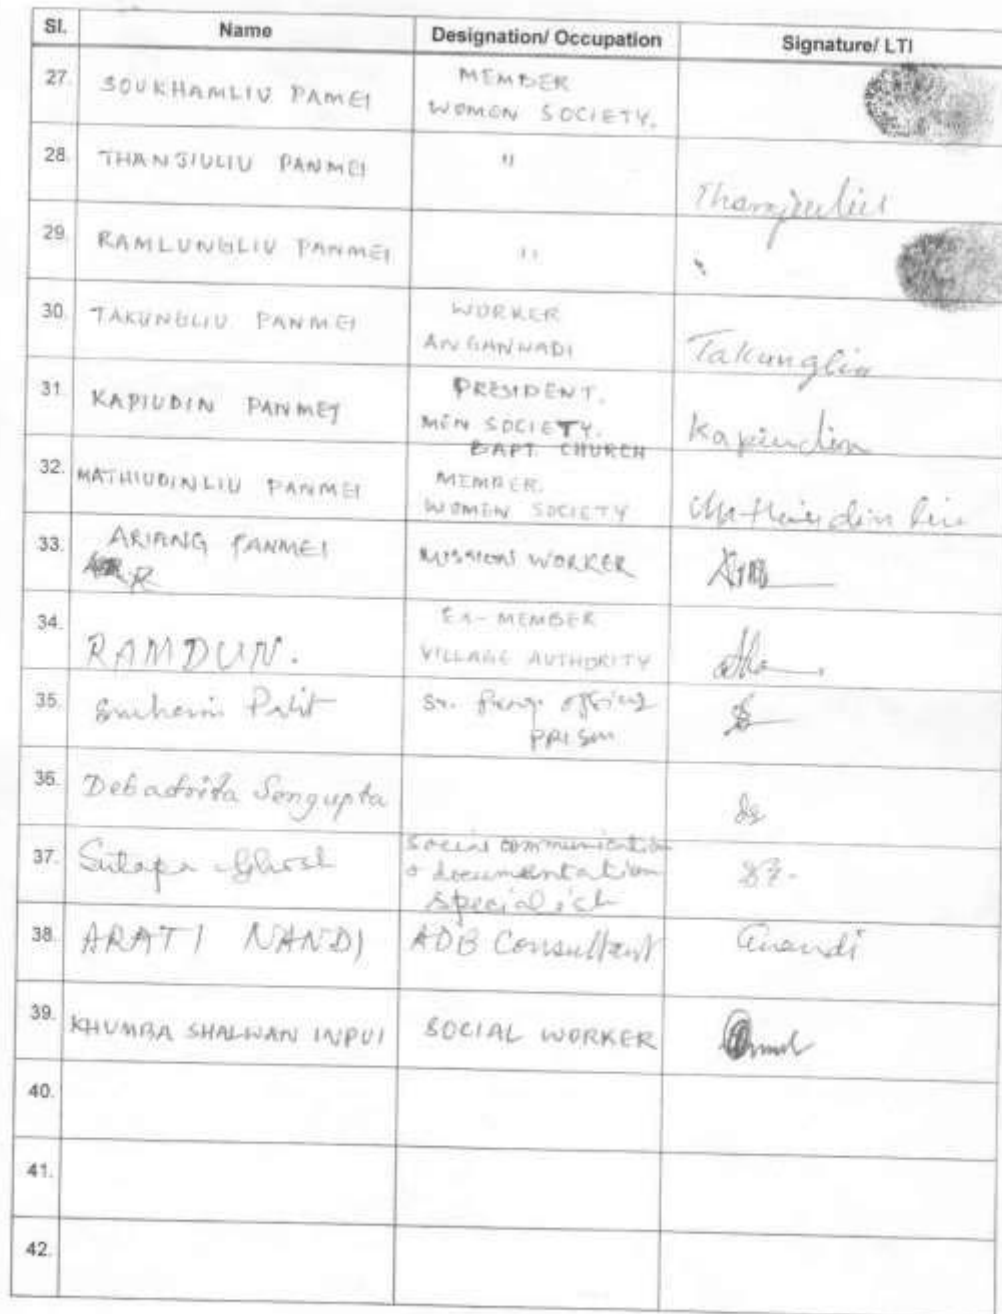 Sl. Name Designation/ Occupation Signature/ LTI
27. SOUKHAMLIU PAMEI MEMBER
WOMEN SOCIETY.
28. THANJIULIU PANMEI " Thanjiuliu
29. RAMLUNGLIU PANMEI "
30. TAKUNGLIU PANMEI WORKER
ANGANWADI Takungliu
31. KAPIUDIN PANMEI PRESIDENT.
MEN SOCIETY. Kapiudin
BAPT. CHURCH
32. MATHIUDINLIU PANMEI MEMBER.
WOMEN SOCIETY Mathiudinliu
33. ARIANG PANMEI MISSION WORKER
34. EX-MEMBER
RAMDUN. VILLAGE AUTHORITY
35. Palit Sr.
PRISM
36. Debadrita Sengupta
37. Sutapa Ghosh Social communication
& documentation
specialist
38. ARATI NANDI ADB Consultant Anandi
39. KHUMBA SHALWAN INPUI SOCIAL WORKER
40.
41.
42.